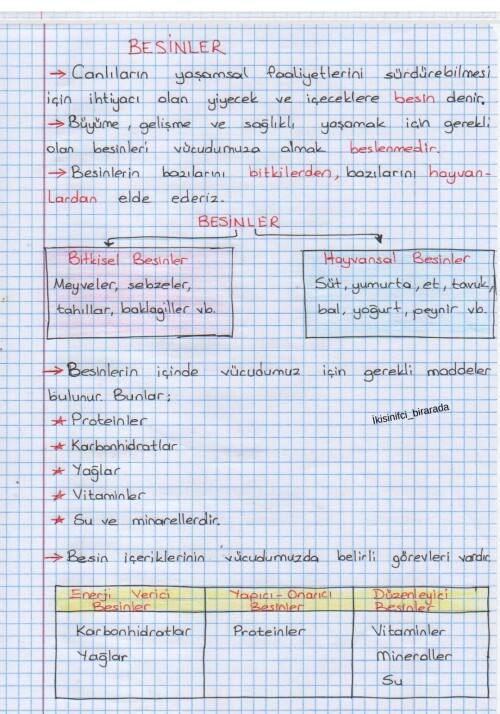 BESİNLER
→ Canlıların yaşamsal faaliyetlerini sürdürebilmesi
için ihtiyacı olan yiyecek ve içeceklere besin denir.
→ Büyüme, gelişme ve sağlıklı yaşamak için gerekli
olan besinleri vücudumuza almak beslenmedir.
→ Besinlerin bazılarını bitkilerden, bazılarını hayvan-
lardan elde ederiz.
BESİNLER
Bitkisel Besinler
Meyveler, sebzeler,
tahıllar, baklagiller vb.
Hayvansal Besinler
Süt, yumurta, et, tavuk,
bal, yoğurt, peynir vb.
→ Besinlerin içinde vücudumuz için gerekli maddeler
bulunur. Bunlar;
★ Proteinler
★ Karbonhidratlar
★ Yağlar
★ Vitaminler
★ Su ve minarellerdir.
ikisinifci_birarada
→ Besin içeriklerinin vücudumuzda belirli görevleri vardır.
Enerji Verici
Besinler
Karbonhidratlar
Yağlar
Yapıcı-Onarıcı
Besinler
Proteinler
Düzenleyici
Besinler
Vitaminler
Mineraller
Su